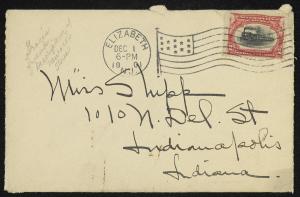 ELIZABETH
DEC 1
6-PM
N.J.
Miss Shipp
1010 N. Del. St
Indianapolis
Indiana.